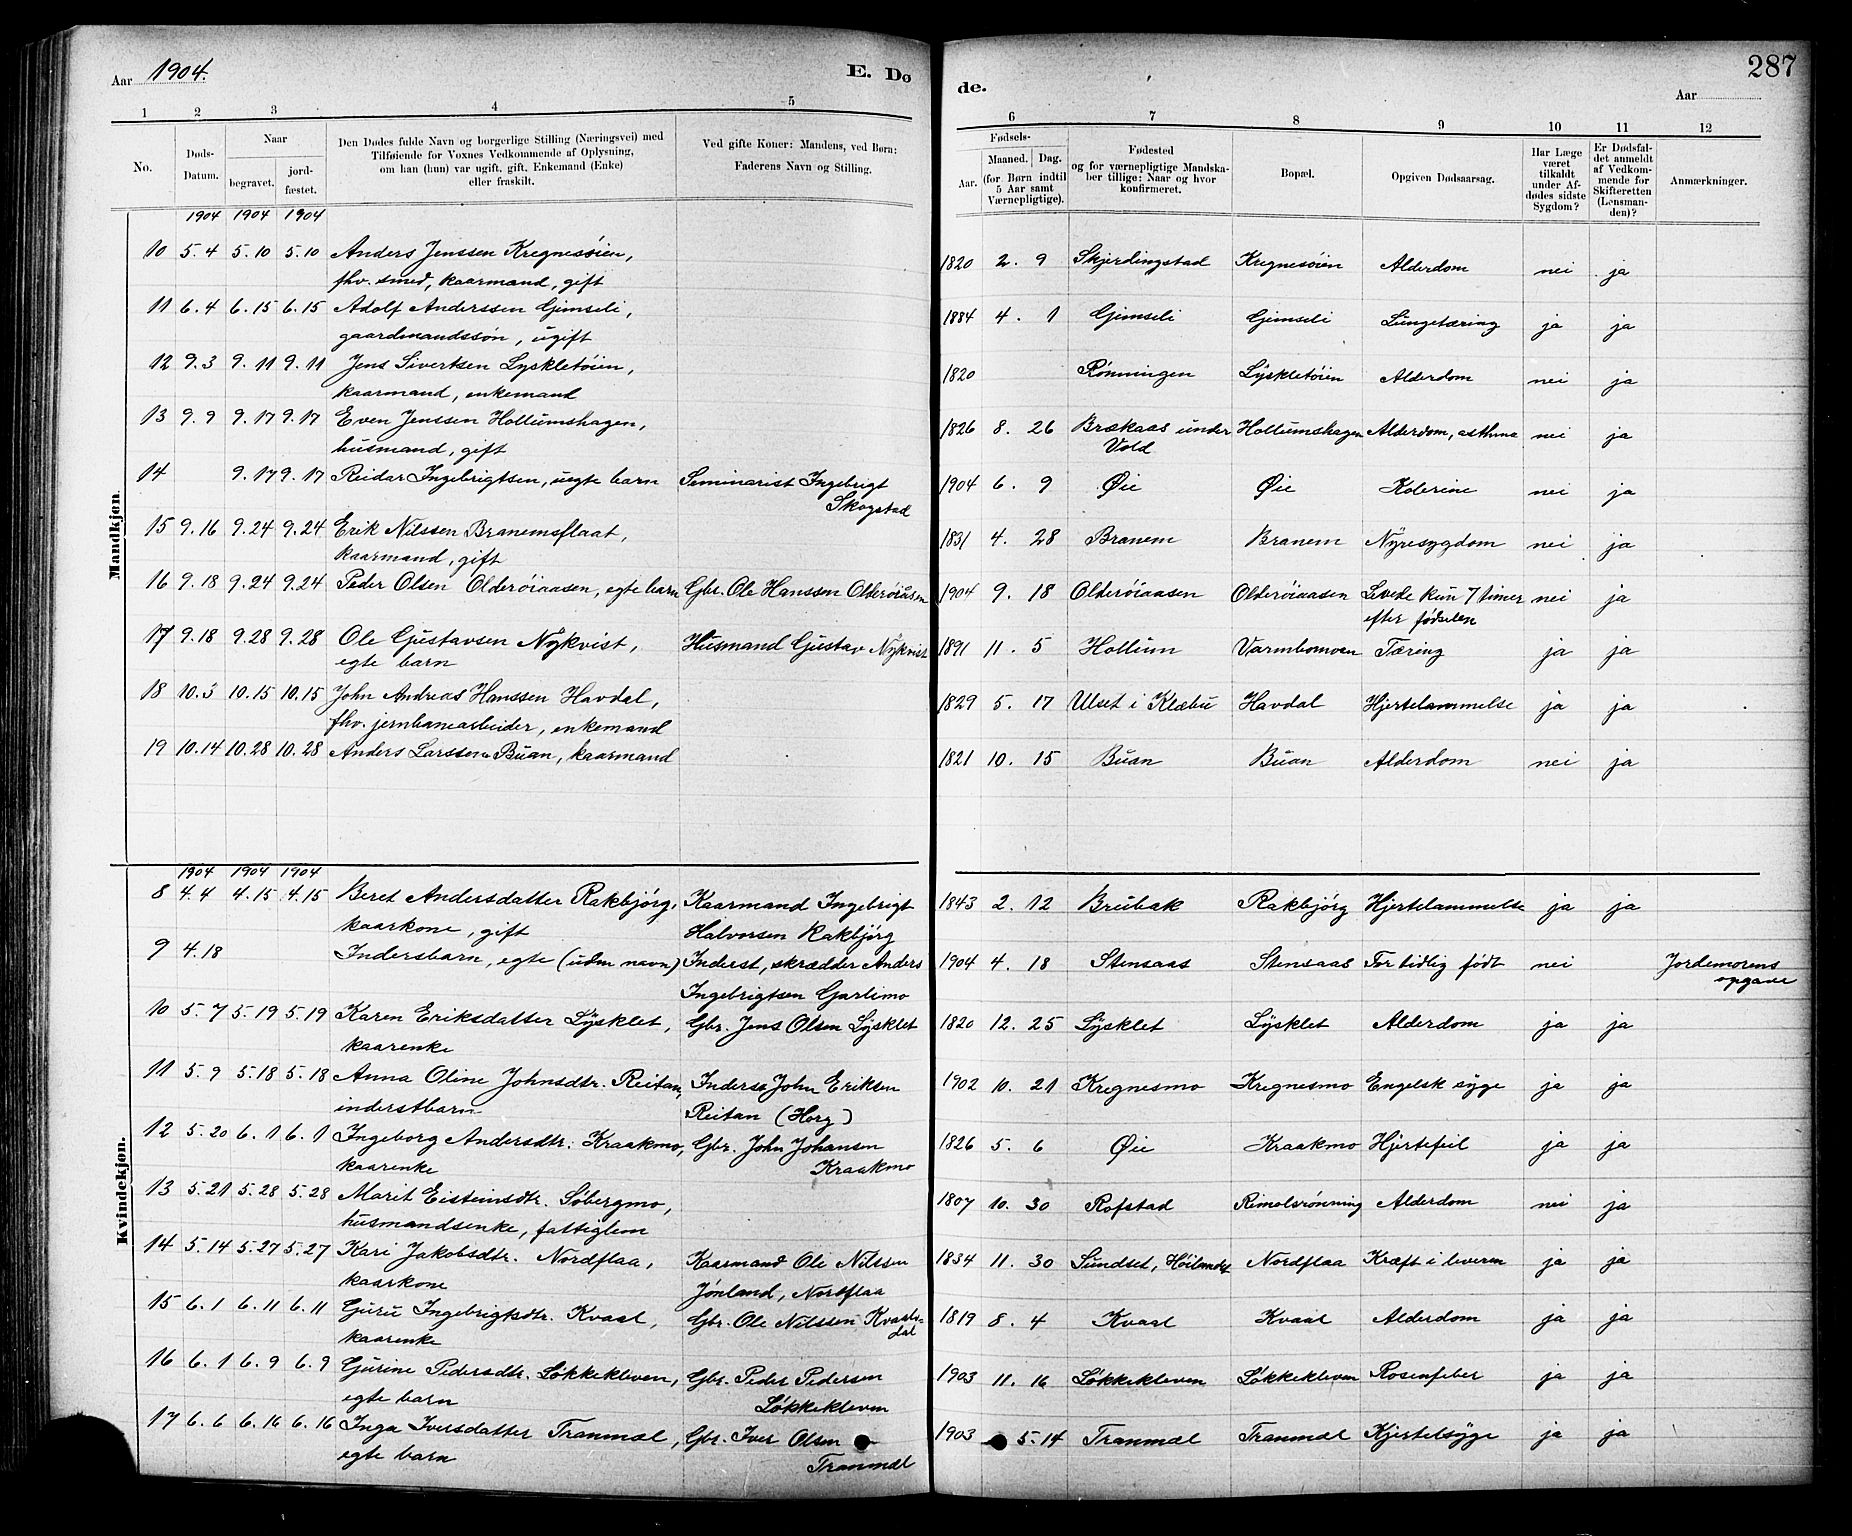 Aar 1904.
E. Dø
1 2 3 4 5
No.
Døds-Datum.
Naar
begravet.
jord-fæstet.
Den Dødes fulde Navn og borgerlige Stilling (Næringsvei) med
Tilføiende for Voxnes Vedkommende af Oplysning,
om han (hun) var ugift, gift, Enkemand (Enke)
eller fraskilt.
Ved gifte Koner: Mandens, ved Børn:
Faderens Navn og Stilling.
Mandkjøn.
1904 1904 1904
10 5.4 5.10 5.10 Anders Jenssen Kregnesøien,
fhv. smed, kaarmand, gift
11 6.4 6.15 6.15 Adolf Anderssen Gimseli,
gaardmandssøn, ugift
12 9.3 9.11 9.11 Jens Sivertsen Lyskletøien,
kaarmand, enkemand
13 9.9 9.17 9.17 Even Jenssen Hollumshagen,
husmand, gift
14 9.17 9.17 Reidar Ingebrigtsen, uegte barn Seminarist Ingebrigt
Skogstad
15 9.16 9.24 9.24 Erik Nilssen Branemsflaat,
kaarmand, gift
16 9.18 9.24 9.24 Peder Olsen Olderøiaasen, egte barn Gbr. Ole Hanssen Olderøiaasen
17 9.18 9.28 9.28 Ole Gustavsen Nykvist, Husmand Gustav Nykvist
egte barn
18 10.3 10.15 10.15 John Andreas Hanssen Havdal,
fhv. jernbanearbeider, enkemand
19 10.14 10.28 10.28 Anders Larssen Buan, kaarmand
Kvindekjøn.
1904 1904 1904
8 4.4 4.15 4.15 Beret Andersdatter Rakbjørg, Kaarmand Ingebrigt
kaarkone, gift Halvorsen Rakbjørg
9 4.18 Indersbarn, egte (uden navn) Inderst, skrædder Anders
Ingebrigtsen Garlimo
10 5.7 5.19 5.19 Karen Eriksdatter Lysklet, Gbr. Jens Olsen Lysklet
kaarenke
11 5.9 5.18 5.18 Anna Oline Johnsdtr. Reitan, Inderst John Eriksen
inderstbarn Reitan (Horg)
12 5.20 6.1 6.1 Ingeborg Andersdtr. Kraakmo, Gbr. John Johansen
kaarenke Kraakmo
13 5.21 5.28 5.28 Marit Eisteinsdtr. Søbergmo,
husmandsenke, fattiglem
14 5.14 5.27 5.27 Kari Jakobsdtr. Nordflaa, Kaarmand Ole Nilssen
kaarkone Jønland, Nordflaa
15 6.1 6.11 6.11 Guru Ingebrigtsdtr. Kvaal, Gbr. Ole Nilssen
kaarenke
16 6.1 6.9 6.9 Gurine Pedersdtr. Løkkekleven, Gbr. Peder Pedersen
egte barn Løkkekleven
17 6.6 6.16 6.16 Inga Iversdatter Tranmæl, Gbr. Iver Olsen
egte barn Tranmæl
de.
Aar
287
6 7 8 9 10 11 12
Fødsels-
Aar.
Maaned. Dag.
(for Børn indtil
5 Aar samt
Værnepligtige).
Fødested
og for værnepligtige Mandska-
ber tillige: Naar og hvor
konfirmeret.
Bopæl.
Opgiven Dødsaarsag.
Har Læge
været
tilkaldt
under Af-
dødes sidste
Sygdom?
Er Dødsfal-
det anmeldt
af Vedkom-
mende for
Skifteretten
(Lensman-
den)?
Anmærkninger.
1820 2. 9 Skjerdingstad Kregnesøien Alderdom nei ja
1884 4. 1 Gimseli Gimseli Lungetæring ja ja
1820 Rønningen Lyskletøien Alderdom nei ja
1826 8. 26 Brækaas under Hollumshagen Alderdom, asthma nei ja
Vold
1904 6. 9 Øie Øie Kolerine nei ja
1831 4. 28 Branem Branem Nyresygdom nei ja
1904 9. 18 Olderøiaasen Olderøiaasen Levede kun 7 timer nei ja
efter fødselen
1891 11. 5 Hollum Varmbomoen Tæring ja ja
1829 5. 17 Ulset i Klæbu Havdal Hjertelammelse ja ja
1821 10. 15 Buan Buan Alderdom nei ja
1843 2. 12 Brubak Rakbjørg Hjertelammelse ja ja
1904 4. 18 Stensaas Stensaas For tidlig født nei Jordemorens
opgave
1820 12. 25 Lysklet Lysklet Alderdom ja ja
1902 10. 21 Kregnesmo Kregnesmo Engelsk syge ja ja
1826 5. 6 Øie Kraakmo Hjertefeil ja ja
1807 10. 30 Rofstad Rimolsrønning Alderdom nei ja
1834 11. 30 Sundset, Høilandet Nordflaa Kræft i leveren ja ja
1819 8. 4 Kvaal Kvaal Alderdom ja ja
1903 11. 16 Løkkekleven Løkkekleven Rosenfeber ja ja
1903 5. 14 Tranmæl Tranmæl Kjertelsyge ja ja